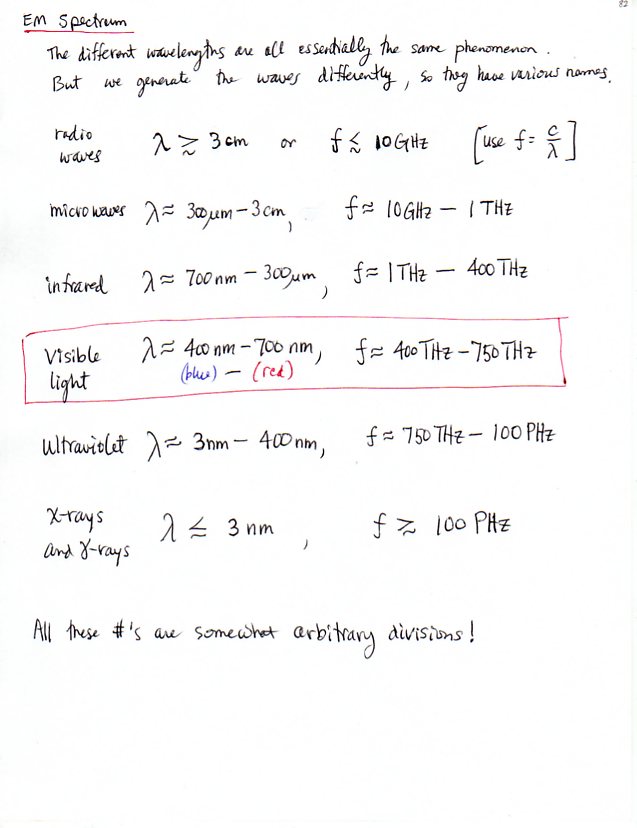 82
EM Spectrum
The different wavelengths are all essentially the same phenomenon.
But we generate the waves differently, so they have various names.
radio waves λ ≳ 3 cm or f ≲ 10 GHz [use f = c/λ]
microwaves λ ≈ 300 μm – 3 cm, f ≈ 10 GHz – 1 THz
infrared λ ≈ 700 nm – 300 μm, f ≈ 1 THz – 400 THz
Visible light λ ≈ 400 nm – 700 nm, f ≈ 400 THz – 750 THz
(blue) – (red)
Ultraviolet λ ≈ 3 nm – 400 nm, f ≈ 750 THz – 100 PHz
X-rays and γ-rays λ ≲ 3 nm, f ≳ 100 PHz
All these #'s are somewhat arbitrary divisions!